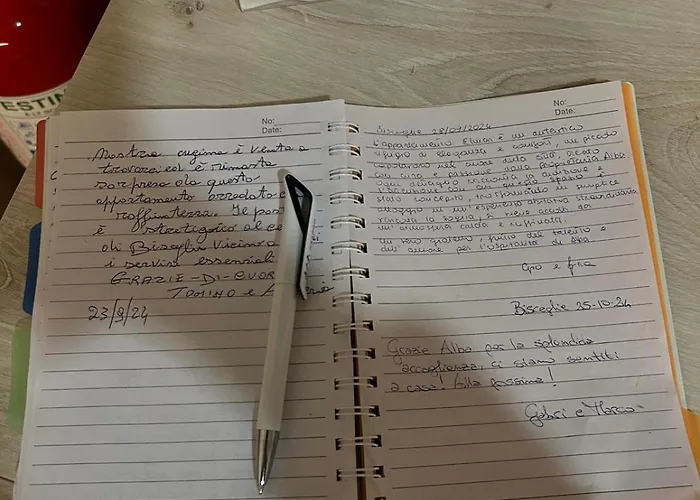 ESTIN
No:
Date:
Nostra cugina è venuta a
trovarci ed è rimasta
sorpresa da questo
appartamento arredato c
raffinatezza. Il pos
è strategico al ce
di Bisceglie vicino a
i servizi essenziali
GRAZIE-DI-CUOR
TONINO e A
23/9/24
No:
Date:
Bisceglie 28/07/2024
L'appartamento è un autentico
rifugio di eleganza e comfort, un piccolo
nel cuore della città. Creato
con cura e passione dalla proprietaria Alba
ogni dettaglio racconta la
con cui questo spazio è
stato concepito, trasformando un semplice
alloggio in un'esperienza abitativa straordinaria
la soglia, si viene accolti da
un'atmosfera calda e raffinata.
Un vero gioiello, frutto del talento e
dell'amore per l'ospitalità di Alba
Bisceglie 25-10-24
Grazie Alba per la splendida
accoglienza, ci siamo sentiti
a casa! Alla prossima!
Gabri e Marco